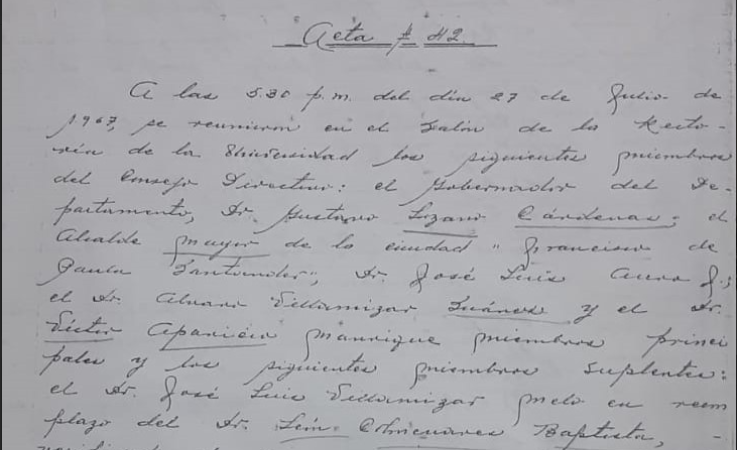 Acta # 42
A las 5.30 p.m. del día 27 de Julio de
1967, se reunieron en el Salón de la Recto-
ría de la Universidad los siguientes miembros
del Consejo Directivo: el Gobernador del De-
partamento, Dr. Gustavo Lozano Cárdenas; el
Alcalde mayor de la ciudad "Francisco de
Paula Santander", Dr. José Luis Acero J.;
el Dr. Alvaro Villamizar Suárez y el Dr.
Víctor Aparicio Manrique miembros princi
pales y los siguientes miembros suplentes:
el Dr. José Luis Villamizar Melo en reem
plazo del Dr. León Colmenares Baptista, -